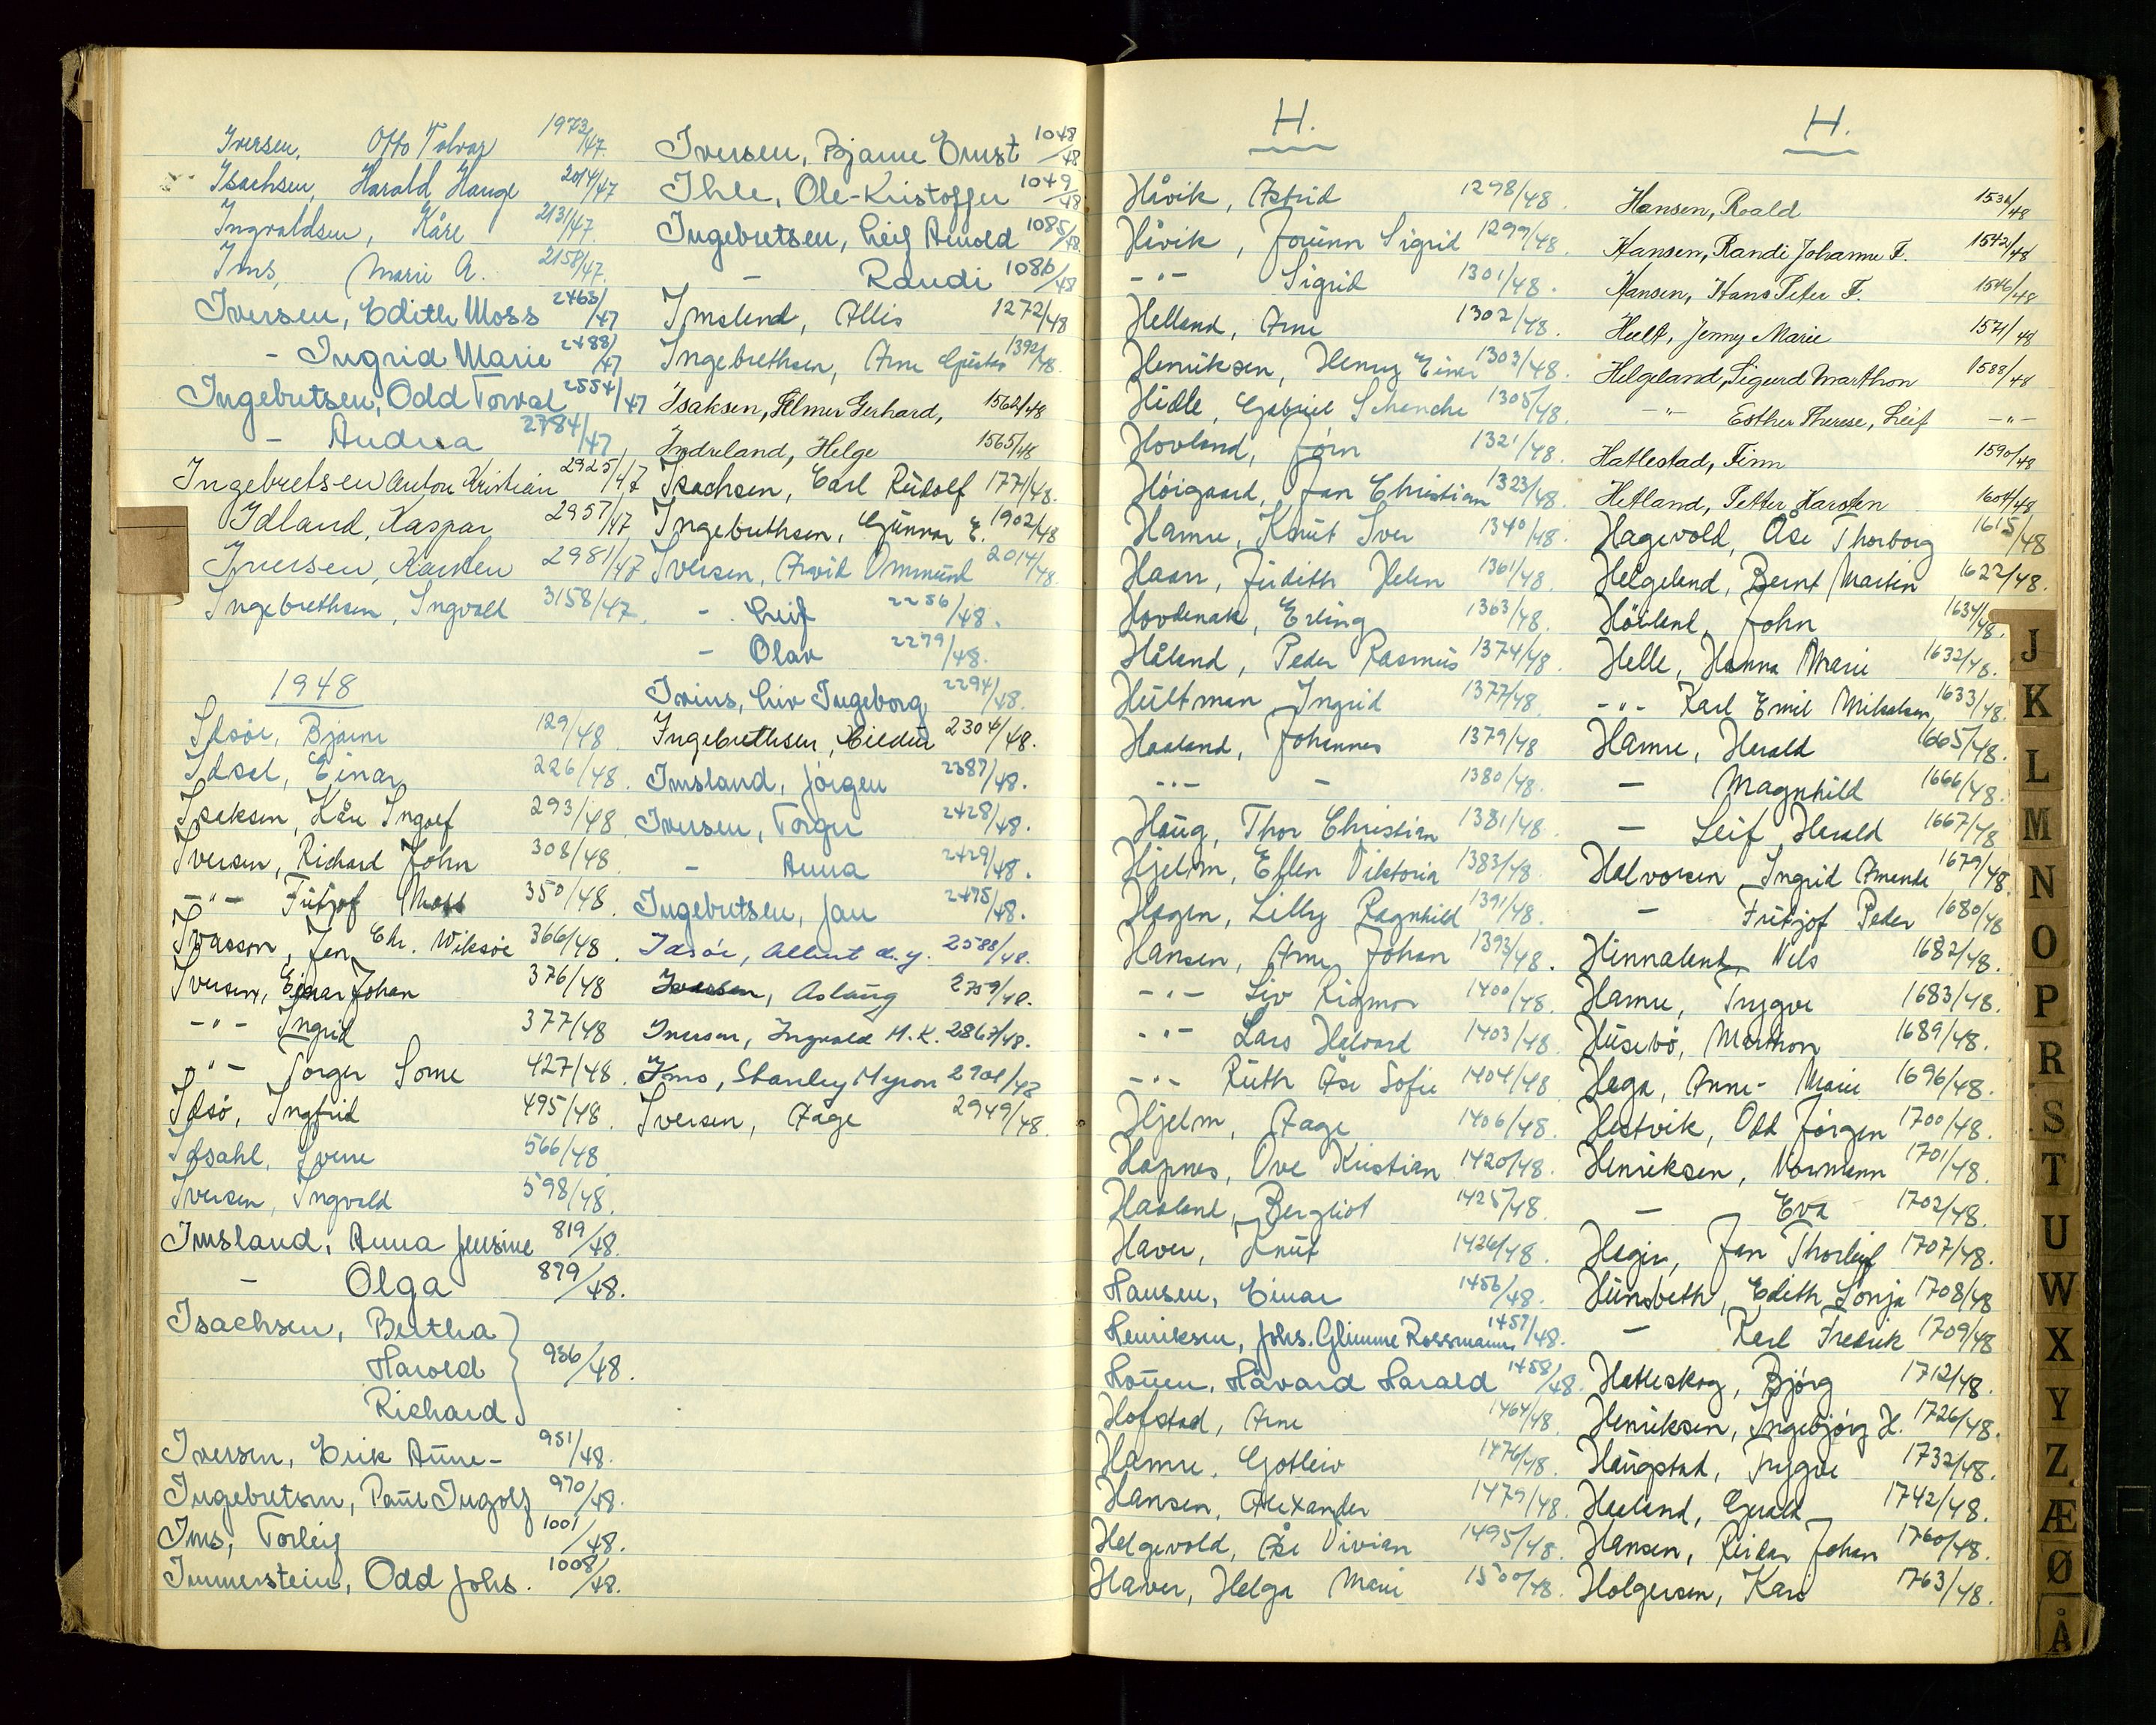 Iversen, Otto Tolvar 1973/47.
Isachsen, Harald Hauge 2014/47
Ingvaldsen, Kåre 2131/47.
Ims, Marie A. 2158/47.
Iversen, Edith Moss 2463/47
- Ingrid Marie 2488/47
Ingebretsen, Odd Torval 2554/47
- Andrea 2784/47
Ingebretsen Anton Kristian 2925/47
Idland, Kaspar 2957/47
Iversen, Karsten 2981/47
Ingebrethsen, Ingvald 3158/47.
1948
Idsöe, Bjarne 129/48
Idsal, Einar 226/48.
Isaksen, Kåre Ingolf 293/48
Iversen, Richard John 308/48
-"- Fritjof Moss 350/48
Ivarsson, Jens Chr. Wiksöe 366/48.
Iversen, Einar Johan 376/48
-"- Ingrid 377/48
-"- Torger Some 427/48.
Idsö, Ingfrid 495/48.
Idsahl, Sverre 566/48
Iversen, Ingvald 598/48.
Imsland, Anna Jensine 819/48.
- Olga 879/48.
Isachsen, Bertha
Harold 936/48.
Richard
Iversen, Erik Anne- 951/48.
Ingebretsen, Paul Ingolf 970/48.
Ims, Torleif 1001/48.
Immerstein, Odd Johs. 1008/48.
Iversen, Bjarne Ernst 1048/48
Ihle, Ole-Kristoffer 1049/48
Ingebretsen, Leif Arnold 1085/48.
- Randi 1086/48
Imsland, Allis 1272/48
Ingebrethsen, Arne Gustav 1392/48.
Isaksen, Elmer Gerhard, 1562/48
Indreland, Helge 1565/48
Isachsen, Carl Rudolf 1771/48.
Ingebrethsen, Gunnar E. 1902/48
Iversen, Arvid Ommund 2014/48.
- Leif 2256/48.
- Olav 2279/48.
Liv Ingeborg 2294/48.
Ingebrethsen, 2304/48.
Imsland, Jörgen 2387/48.
Iversen, Torger 2428/48.
- Anna 2429/48.
Ingebretsen, Jan 2475/48.
Idsöe, Albert d.y. 2588/48.
Iversen, Aslaug 2759/48.
Iversen, Ingvald M.K. 2867/48.
Ims, Stanley Myron 2901/48
Iversen, Aage 2949/48.
H.
Håvik, Astrid 1298/48.
Håvik, Jorunn Sigrid 1299/48.
-"- Sigrid 1301/48.
Helland, Arne 1302/48.
Henriksen, Henry Einar 1303/48.
Hidle, Gabriel Schanche 1305/48.
Hovland, Jörn 1321/48.
Höigaard, Jan Christian 1323/48.
Hamre, Knut Iver 1340/48.
Haarr, Judith Helen 1361/48.
Hovdenak, Erling 1363/48.
Håland, Peder Rasmus 1374/48.
Hultman Ingrid 1377/48.
Haaland, Johannes 1379/48
-"- - 1380/48.
Haug, Thor Christian 1381/48.
Hjelm, Ellen Viktoria 1383/48.
Hagen, Lilly Ragnhild 1391/48.
Hansen, Arne Johan 1393/48.
-"- Liv Rigmor 1400/48.
-"- Lars Halvard 1403/48.
-"- Ruth Åse Sofie 1404/48
Hjelm, Aage 1406/48.
Hapnes, Ove Kristian 1420/48.
Haaland, Bergliot 1425/48.
Haver, Knut 1426/48.
Hansen, Einar 1456/48.
Henriksen, Johs. Glimme Rossmann 1457/48.
Houen, Håvard Harald 1458/48.
Hofstad, Arne 1464/48.
Hamre, Gotleiv 1476/48.
Hansen, Alexander 1479/48.
Helgevold, Åse Vivian 1495/48.
Haver, Helga Marie 1500/48.
H.
Hansen, Roald 1532/48
Hansen, Randi Johanne F. 1542/48
Hansen, Hans Peter F. 1546/48
Hult, Jenny Marie 1571/48
Helgeland, Sigurd Marthon 1588/48
-"- Esther Therese, Leif -"-
Hatlestad, Finn 1590/48
Hetland, Petter Karsten 1604/48
Hagevold, Åse Thorborg 1615/48
Helgeland, Bernt Martin 1622/48.
Höiland, John 1634/48.
Helle, Hanna Marie 1632/48.
-"- Karl Emil Mikalsen, 1633/48.
Hamre, Harald 1665/48.
- Magnhild 1666/48.
- Leif Harald 1667/48
Halvorsen Ingrid Amanda 1679/48.
- Fritjof Peder 1680/48
Hinnaland, Nils 1682/48.
Hamre, Trygve 1683/48.
Husebö, Marthon 1689/48.
Haga, Anne-Marie 1696/48.
Hestvik, Odd Jörgen 1700/48.
Henriksen, Normann 1701/48.
- Eva 1702/48.
Hagir, Jan Thorleif 1707/48.
Hunsbeth, Edith Sonja 1708/48
- Karl Fredrik 1709/48
Hatleskog, Bjørg 1712/48.
Henriksen, Ingebjørg H. 1726/48.
Haugstad, Trygve 1732/48.
Haaland, Gerald 1742/48.
Hansen, Reidar Johan 1760/48.
Holgersen, Kari 1763/48.
J
K
L
M
N
O
P
R
S
T
U
W
X
Y
Z
Æ
Ø
Å